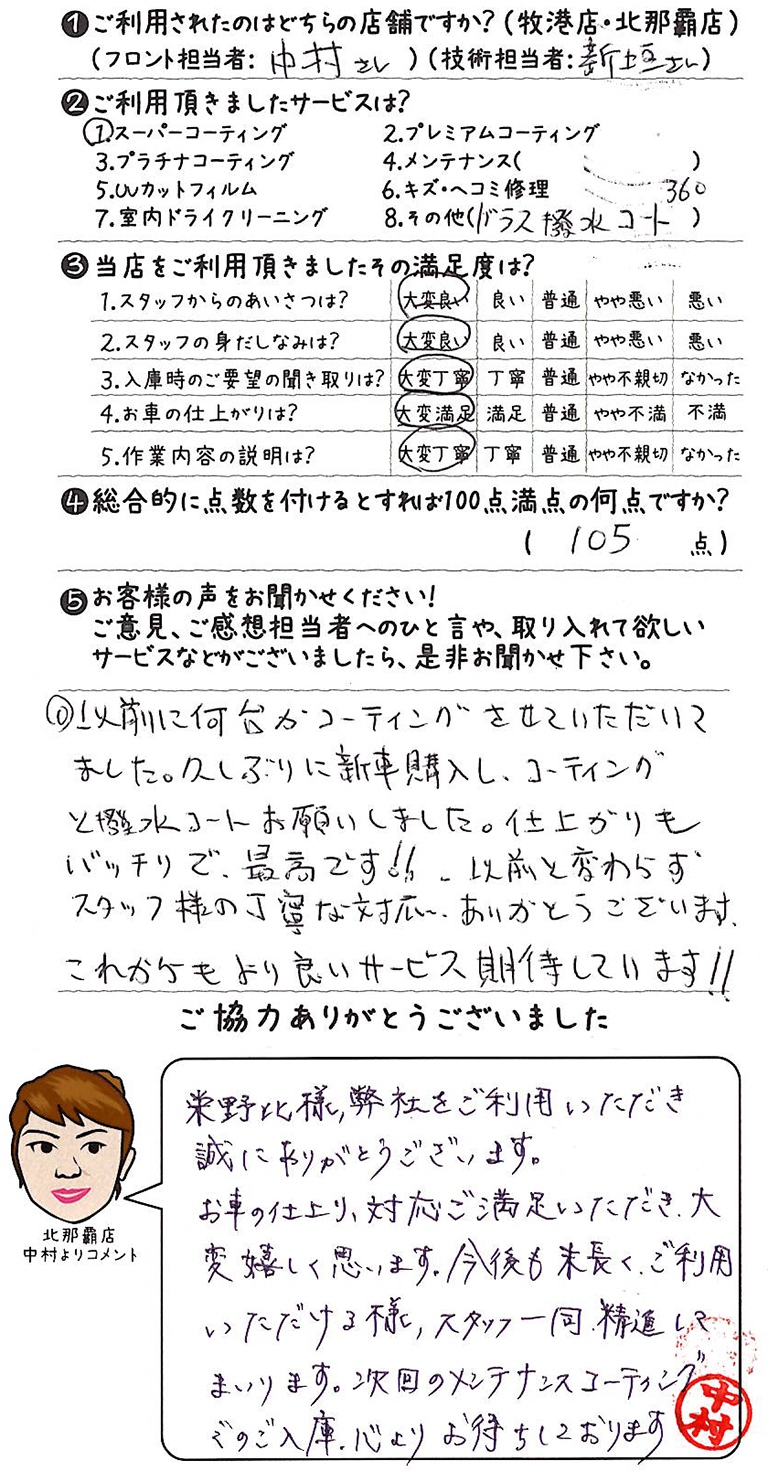 ❶ご利用されたのはどちらの店舗ですか?(牧港店・北那覇店)
(フロント担当者: 中村さん )(技術担当者:新垣さん)
❷ご利用頂きましたサービスは?
1.スーパーコーティング 2.プレミアムコーティング
3.プラチナコーティング 4.メンテナンス( )
5.UVカットフィルム 6.キズ・ヘコミ修理 360
7.室内ドライクリーニング 8.その他(ガラス撥水コート )
❸当店をご利用頂きましたその満足度は?
1.スタッフからのあいさつは? 大変良い 良い 普通 やや悪い 悪い
2.スタッフの身だしなみは? 大変良い 良い 普通 やや悪い 悪い
3.入庫時のご要望の聞き取りは? 大変丁寧 丁寧 普通 やや不親切 なかった
4.お車の仕上がりは? 大変満足 満足 普通 やや不満 不満
5.作業内容の説明は? 大変丁寧 丁寧 普通 やや不親切 なかった
❹総合的に点数を付けるとすれば100点満点の何点ですか?
( 105 点)
❺お客様の声をお聞かせください!
ご意見、ご感想担当者へのひと言や、取り入れて欲しい
サービスなどがございましたら、是非お聞かせ下さい。
以前に何台かコーティングさせていただいて
ました。久しぶりに新車購入し、コーティング
と撥水コートお願いしました。仕上がりも
バッチリで、最高です!!以前と変わらず
スタッフ様の丁寧な対応、ありがとうございます。
これからもより良いサービス期待しています!!
ご協力ありがとうございました
栄野比様,弊社をご利用いただき
誠にありがとうございます。
お車の仕上り、対応ご満足いただき、大
変嬉しく思います。今後も末長く、ご利用
いただける様,スタッフ一同、精進して
まいります。次回のメンテナンスコーティング
でのご入庫、心よりお待ちしております
中村
北那覇店
中村よりコメント